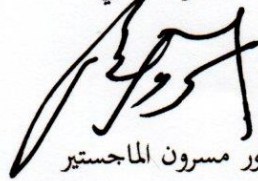 ور مسرون الماجستير